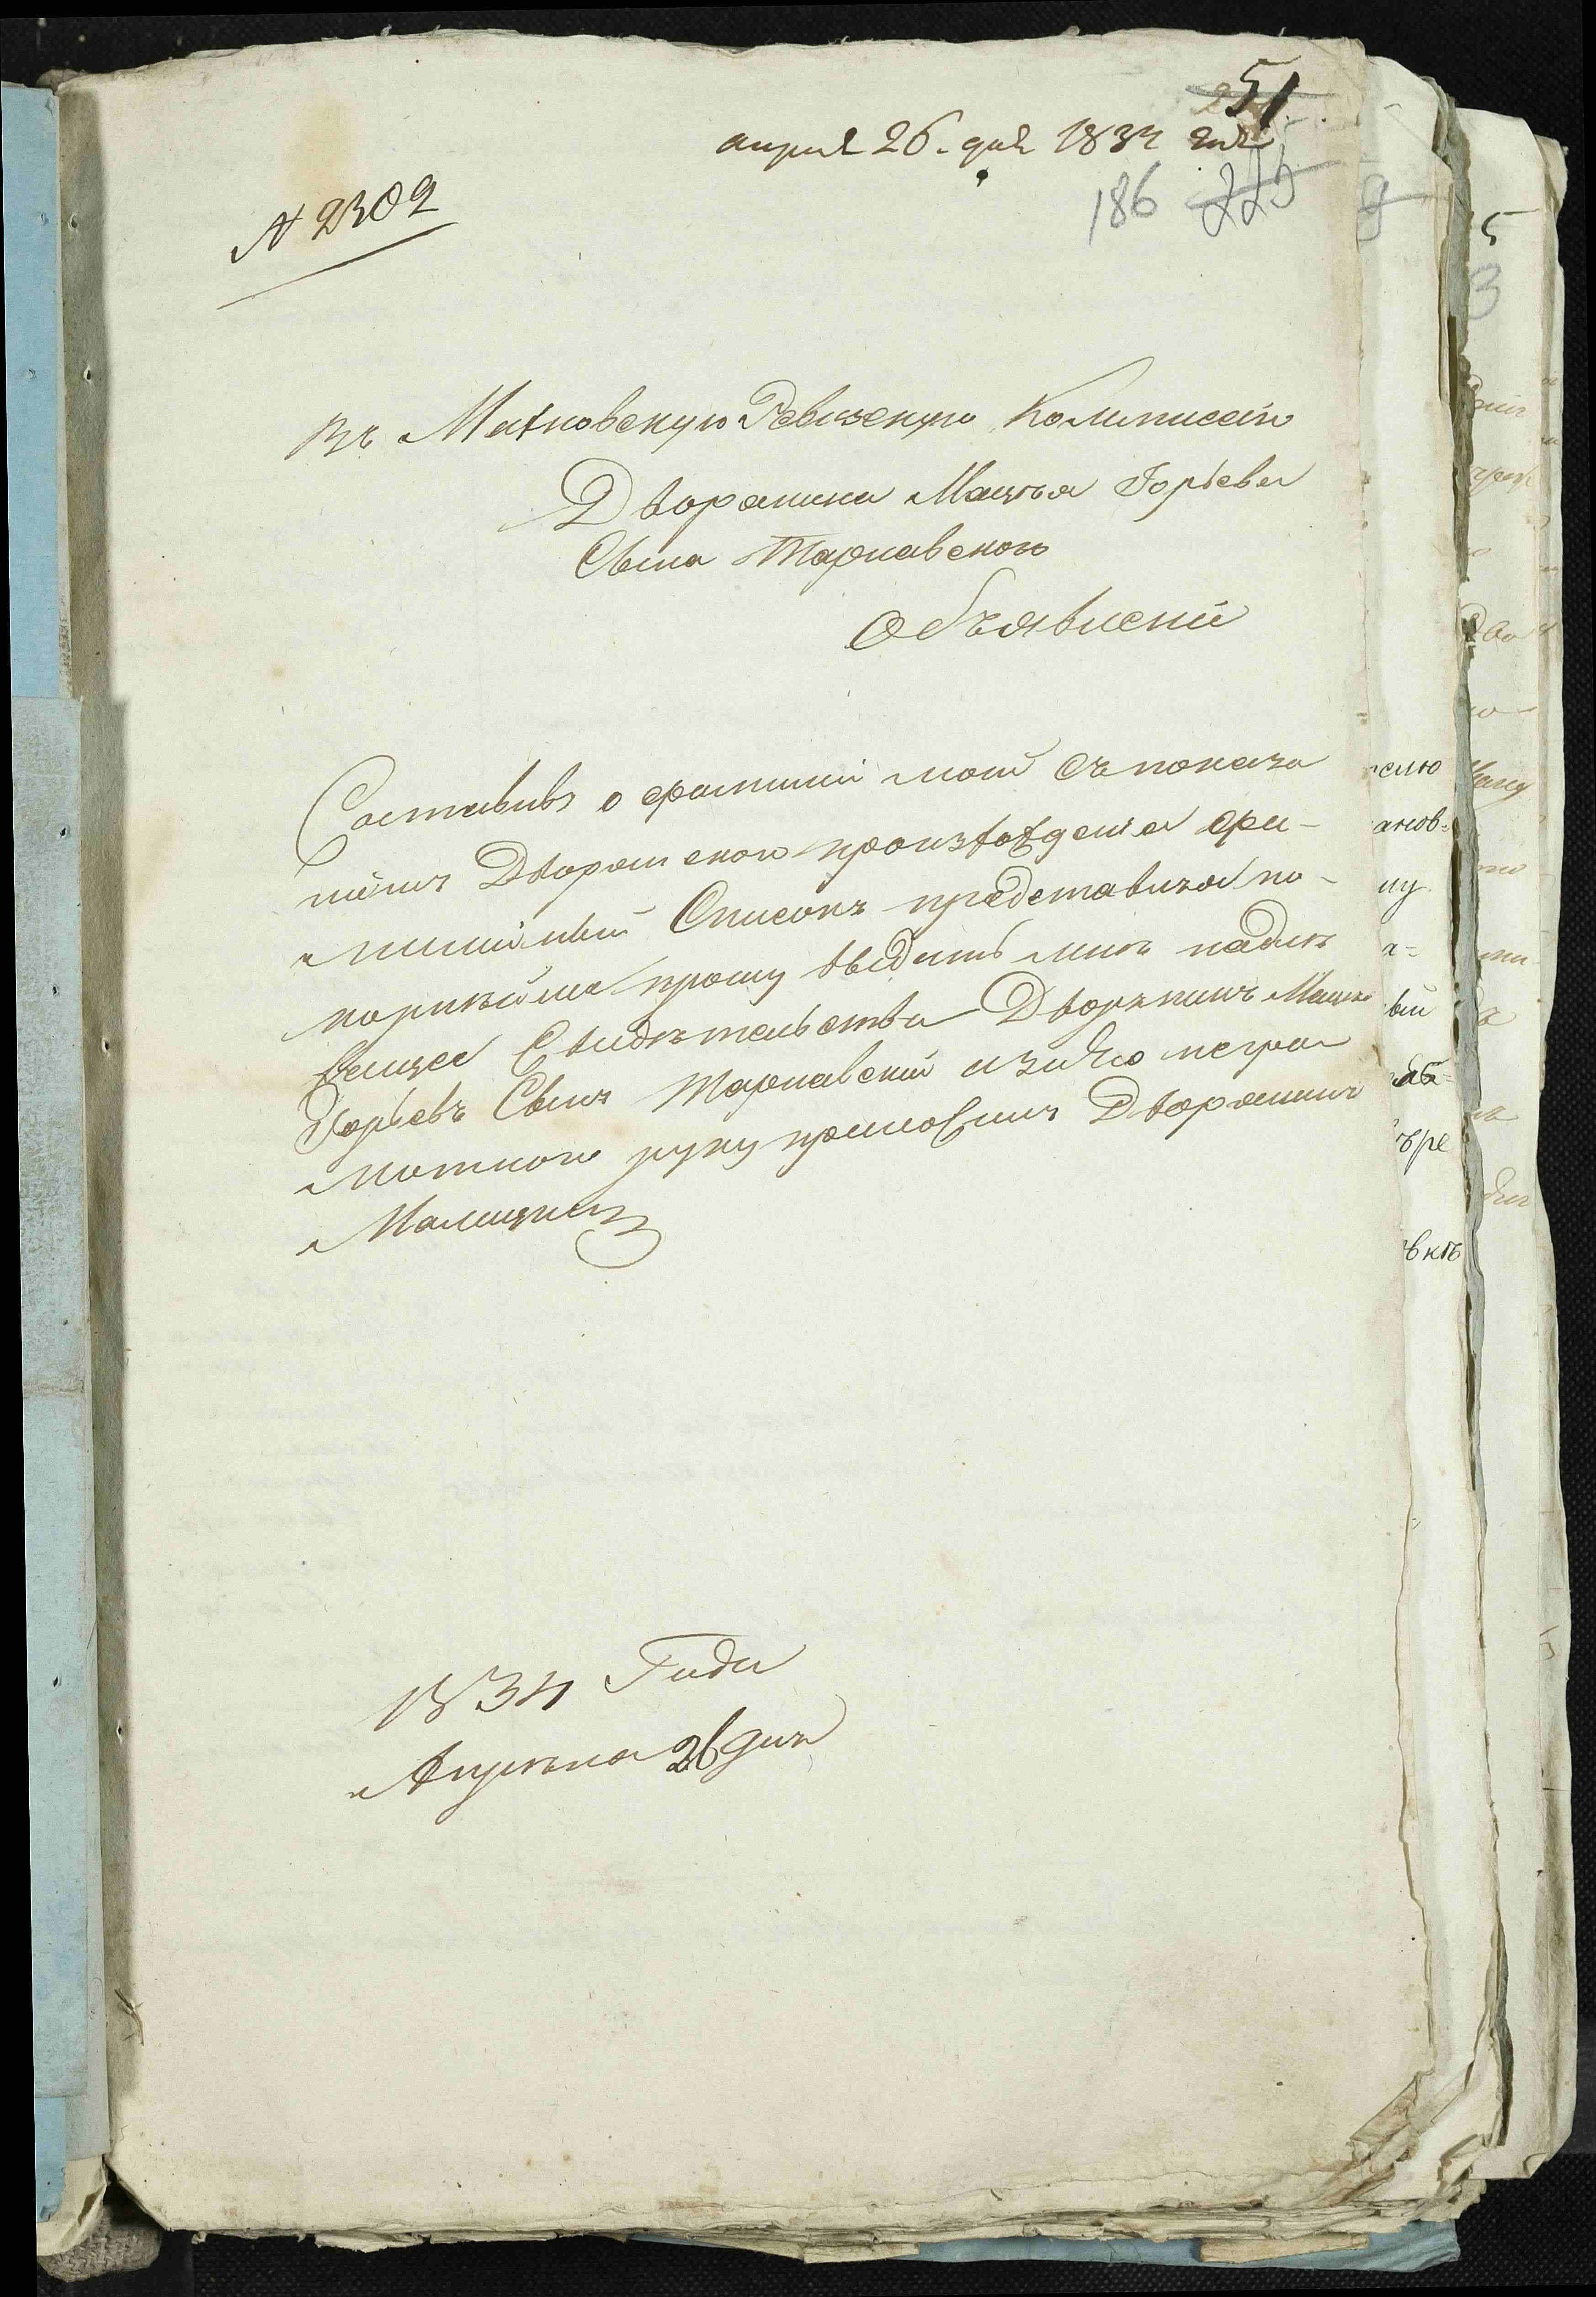 51
апреля 26. дня 1834 года
186 225
№ 2302
Въ Махновскую Ревизскую Коммисѣю
Дворанина Мацѣя Юрьева
Сына Тарнавского
Объявленіе
Составивъ о фамиліи моей съ показа
ніемъ Дворанского произхожденіа фа-
милійный Списокъ представляя по-
корнѣйше прошу выдать мнѣ надле
жащее Свидѣтельства Дворянинъ Мацѣй
Юрьевъ Сынъ Тарнавский а за Его неграмотного
руку приложилъ Дворянинъ
1834 Года
Апрѣля 26 дня